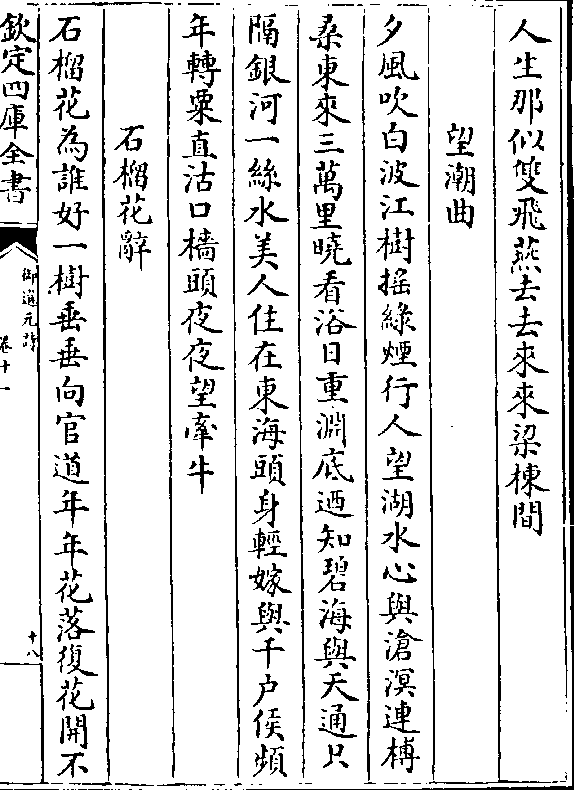 人生那似雙飛燕去去來來梁棟間
望潮曲
夕風吹白波江樹搖綠煙行人望湖水心與滄溟連榑
桑東來三萬里曉看浴日重淵底迺知碧海與天通只
隔銀河一絲水美人住在東海頭身輕嫁與千户侯頻
年轉粟直沽口檣頭夜夜望牽牛
石榴花辭
石榴花為誰好一樹垂垂向官道年年花落復花開不
欽定四庫全書
御選元詩
卷十一
十八